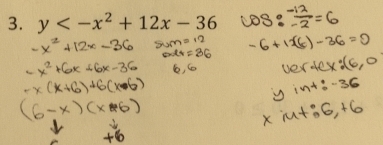 3. y < -x² + 12x - 36
-x² + 12x - 36
-x² + 6x + 6x - 36
-x (x+6) + 6(x+6)
(6-x) (x+6)
6
+6
sum = 12
= 36
6, 6
LOS: -12/-2 = 6
-6 + 12(6) - 36 = 0
vertex: (6, 0
y int: -36
x int: 6, +6